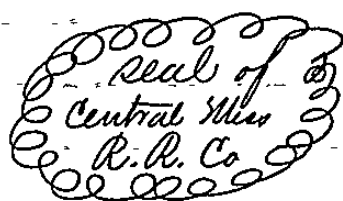 Seal of
Central Miss
R. R. Co